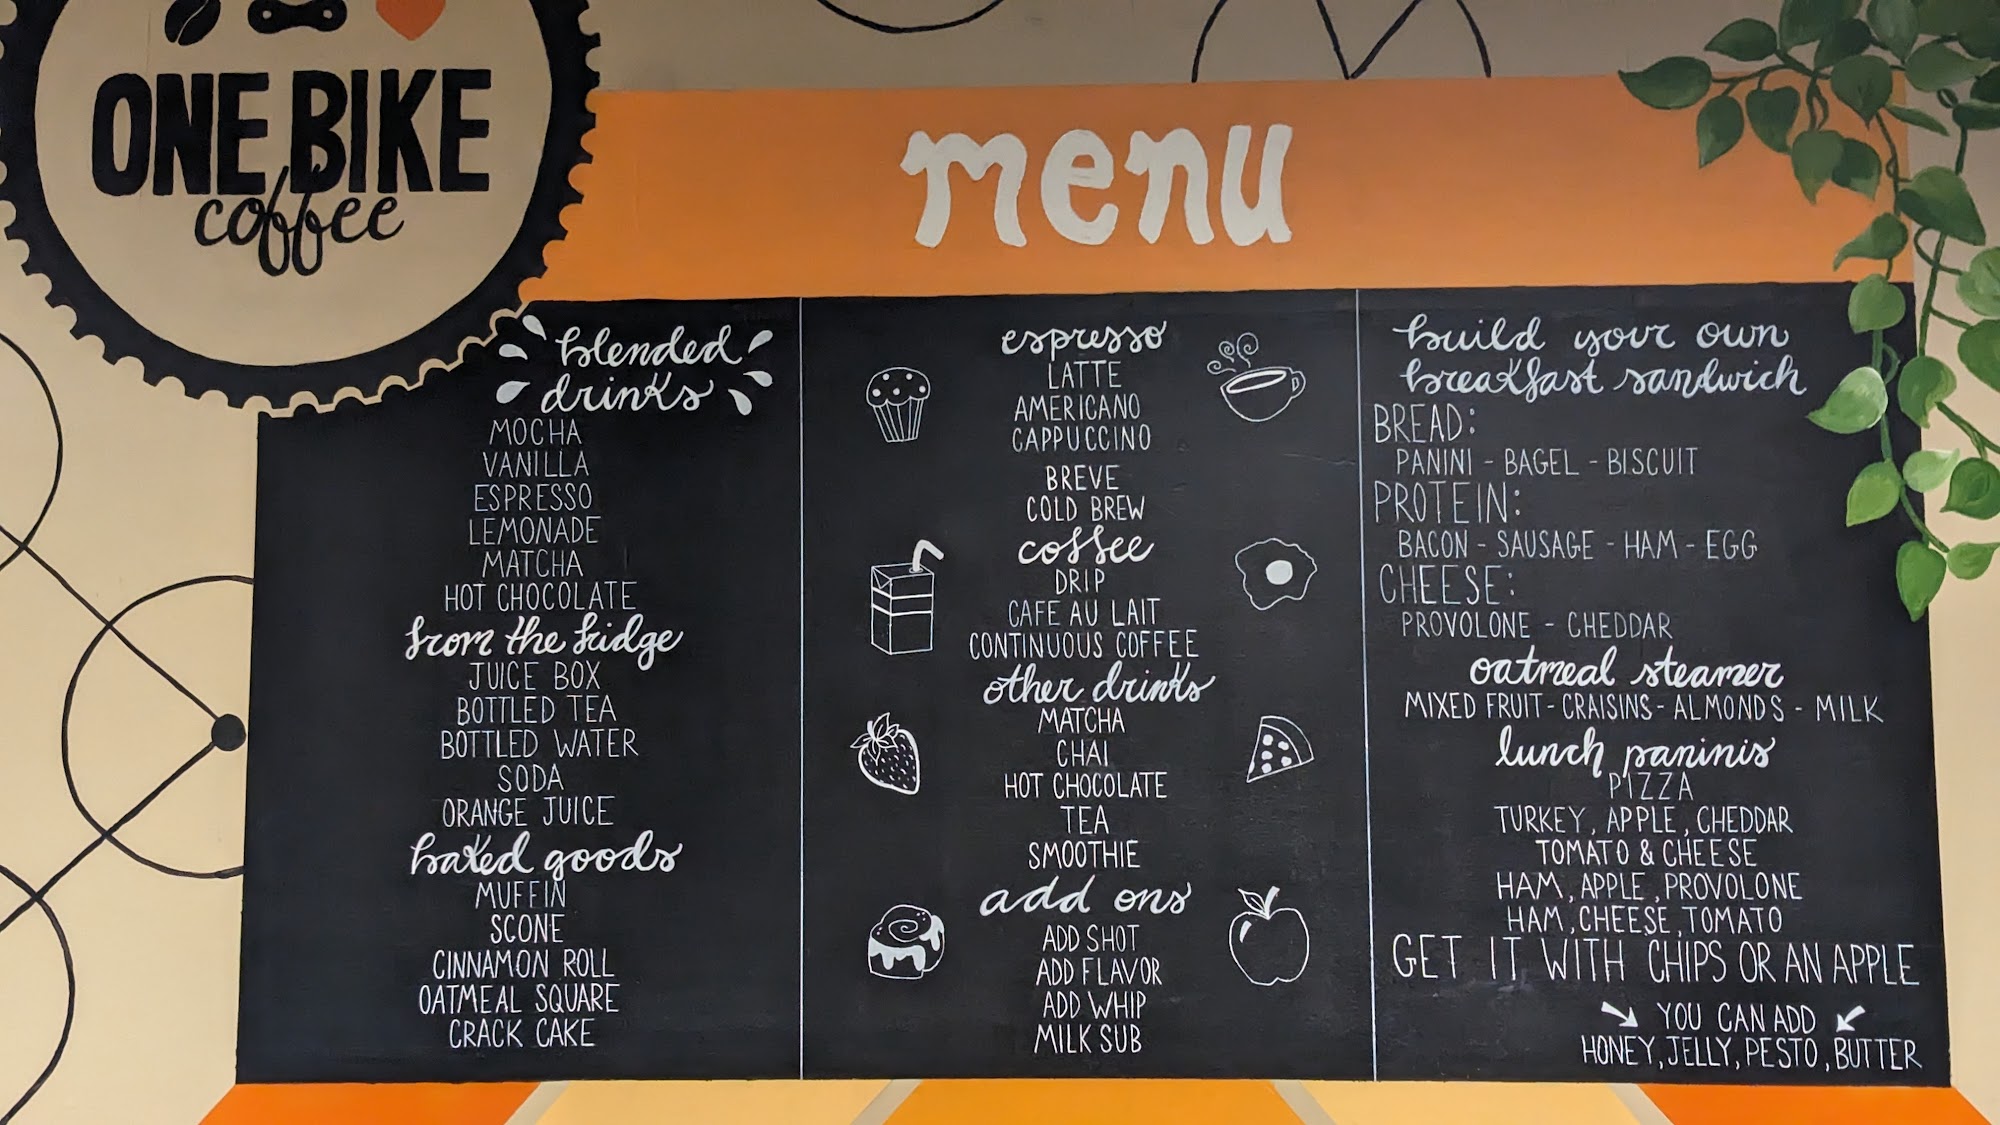 ONE BIKE
coffee
menu
blended
drinks
MOCHA
VANILLA
ESPRESSO
LEMONADE
MATCHA
HOT CHOCOLATE
from the fridge
JUICE BOX
BOTTLED TEA
BOTTLED WATER
SODA
ORANGE JUICE
baked goods
MUFFIN
SCONE
CINNAMON ROLL
OATMEAL SQUARE
CRACK CAKE
espresso
LATTE
AMERICANO
CAPPUCCINO
BREVE
COLD BREW
coffee
DRIP
CAFE AU LAIT
CONTINUOUS COFFEE
other drinks
MATCHA
CHAI
HOT CHOCOLATE
TEA
SMOOTHIE
add ons
ADD SHOT
ADD FLAVOR
ADD WHIP
MILK SUB
build your own
breakfast sandwich
BREAD:
PANINI - BAGEL - BISCUIT
PROTEIN:
BACON - SAUSAGE - HAM - EGG
CHEESE:
PROVOLONE - CHEDDAR
oatmeal steamer
MIXED FRUIT - CRAISINS - ALMONDS - MILK
lunch paninis
PIZZA
TURKEY, APPLE, CHEDDAR
TOMATO & CHEESE
HAM, APPLE, PROVOLONE
HAM, CHEESE, TOMATO
GET IT WITH CHIPS OR AN APPLE
YOU CAN ADD
HONEY, JELLY, PESTO, BUTTER